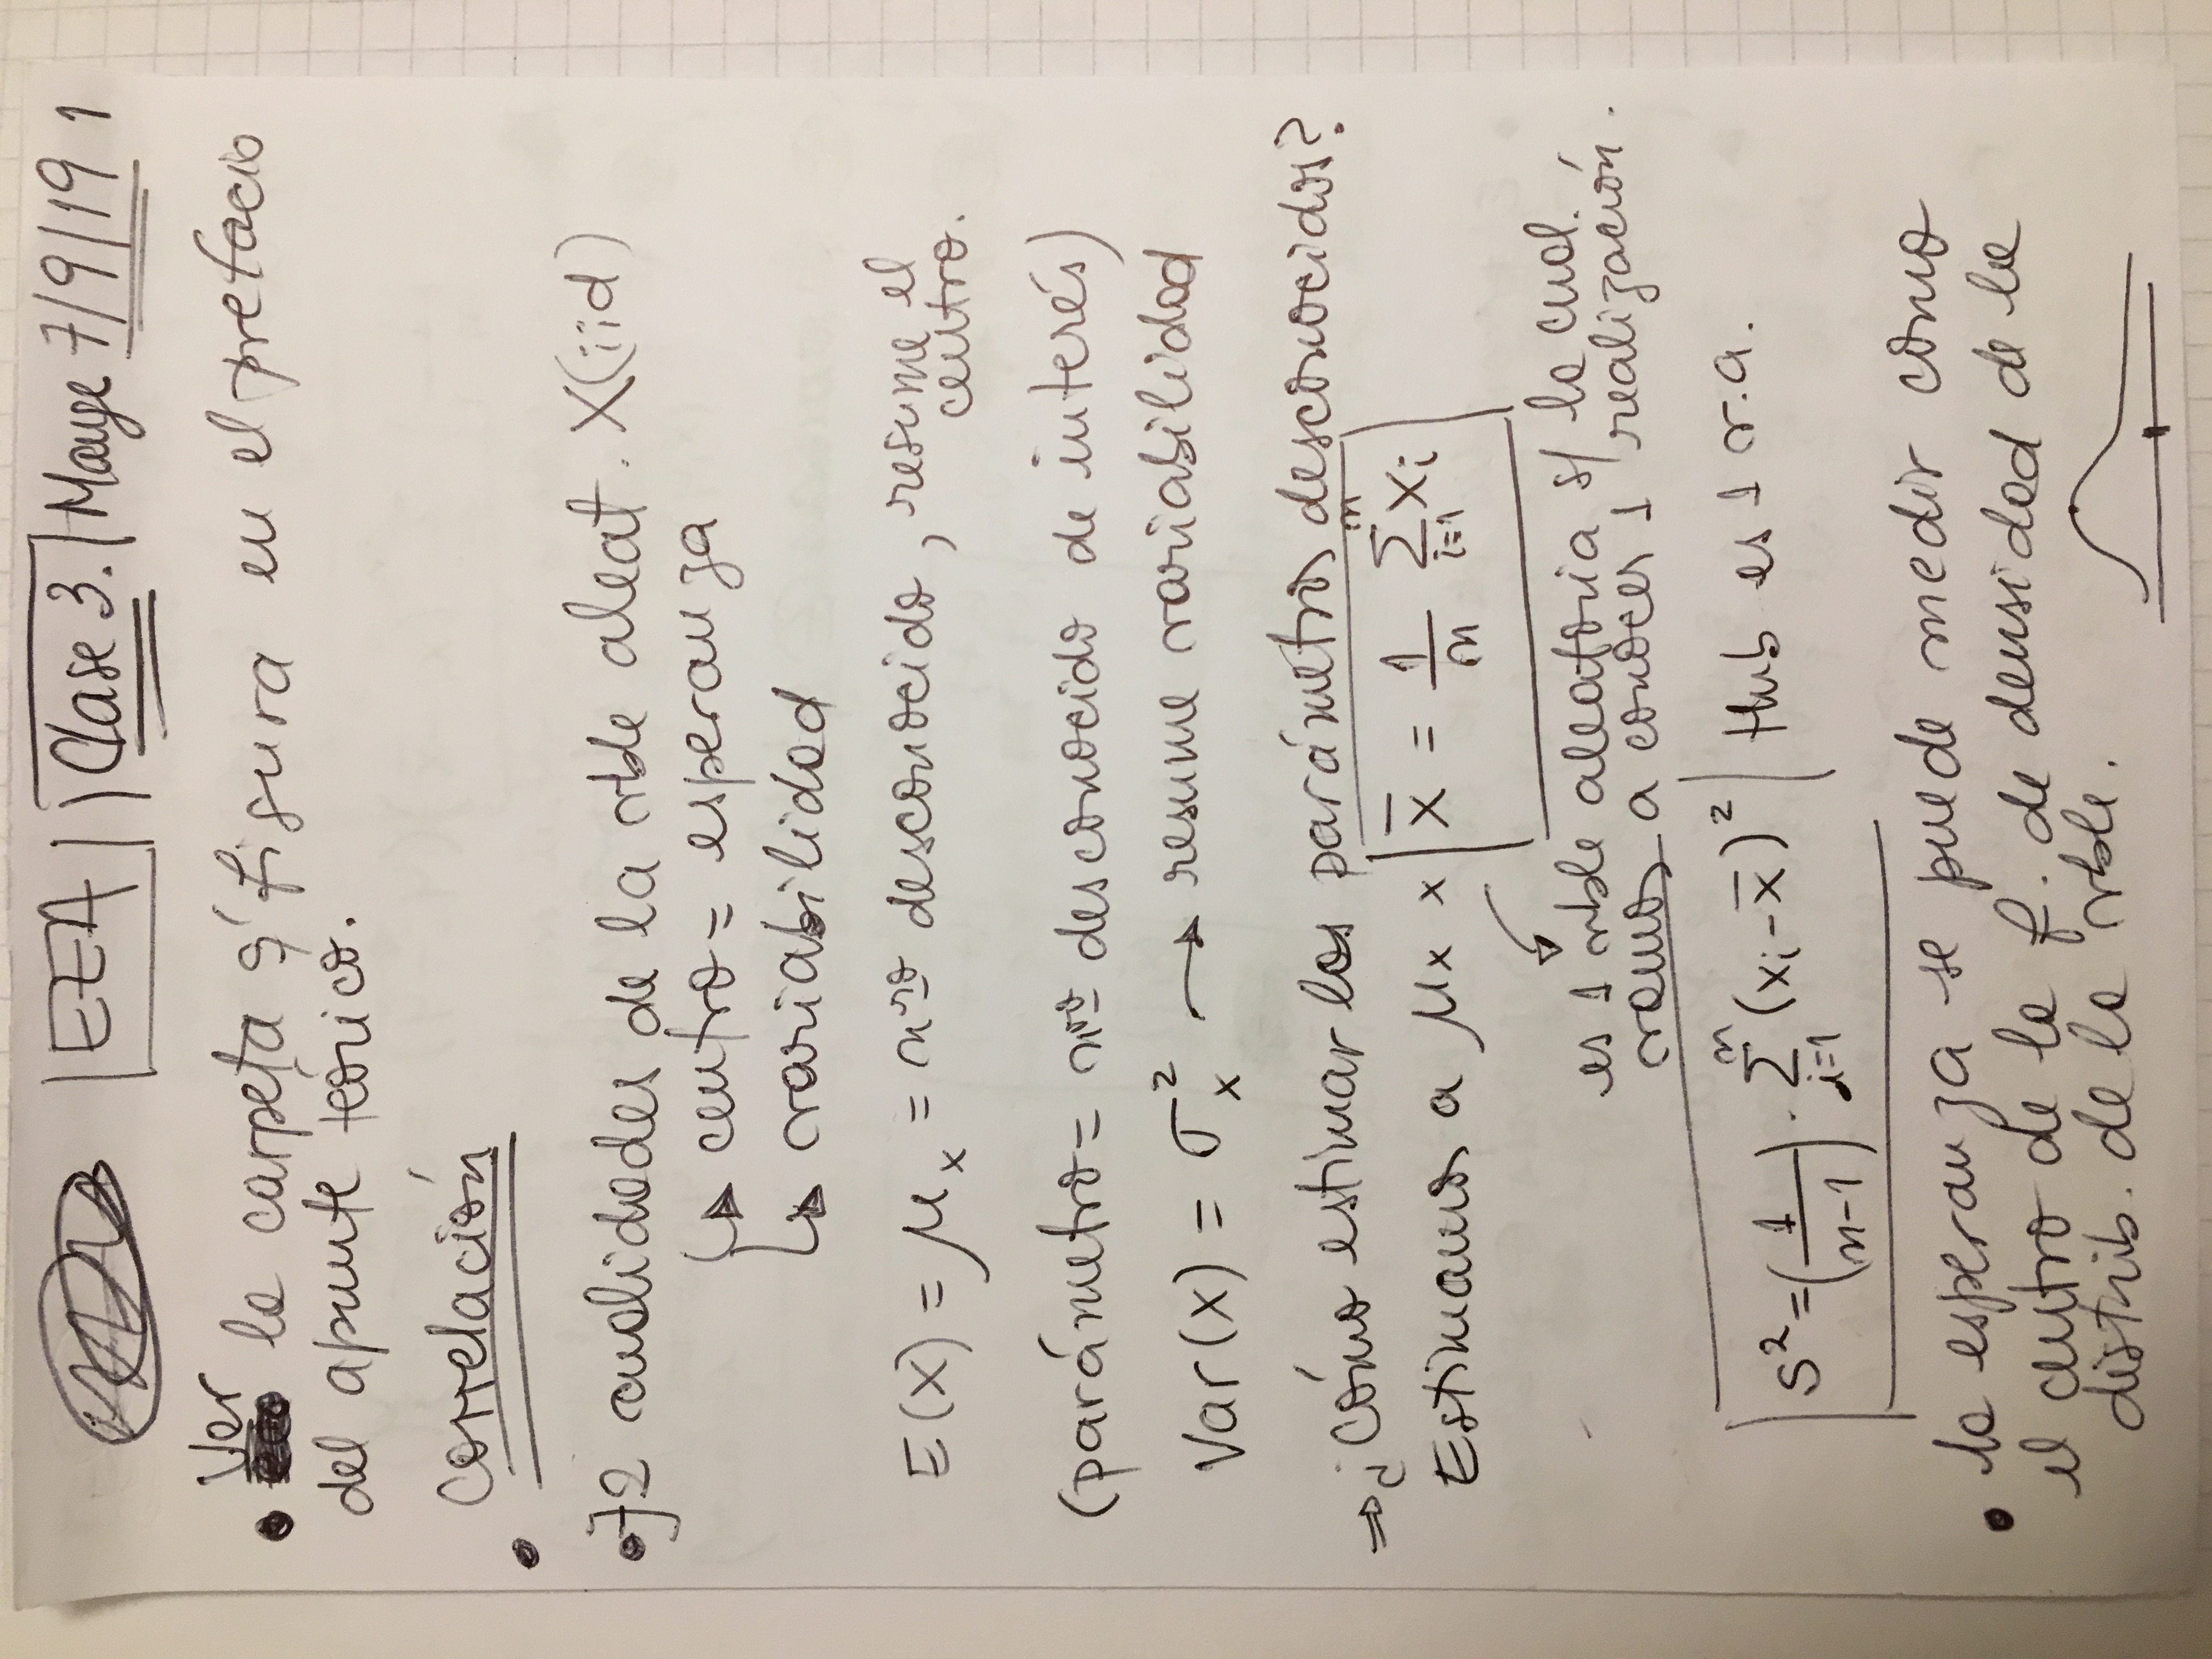 EEA Clase 3. Mauge 7/9/19 1
• Ver la carpeta y figura en el prefacio
del apunte teórico.
• Correlación
• ∃ 2 cualidades de la vble aleat. X(iid)
↳ centro = esperanza
↳ variabilidad
E(X) = μx = nro desconocido, resume el
centro.
(parámetro = nro desconocido de interés)
Var(X) = σ²x → resume variabilidad
⇒ ¿Cómo estimar los parámetros desconocidos?
Estimamos a μx x X̄ = 1/n Σⁿᵢ₌₁ Xi
es 1 vble aleatoria s/ la cual
vamos a conocer 1 realización.
S² = (1/(n-1)) · Σⁿᵢ₌₁ (xi - x̄)² tmb es 1 v.a.
• la esperanza se puede medir como
el centro de la f. de densidad de la
distrib. de la vble.